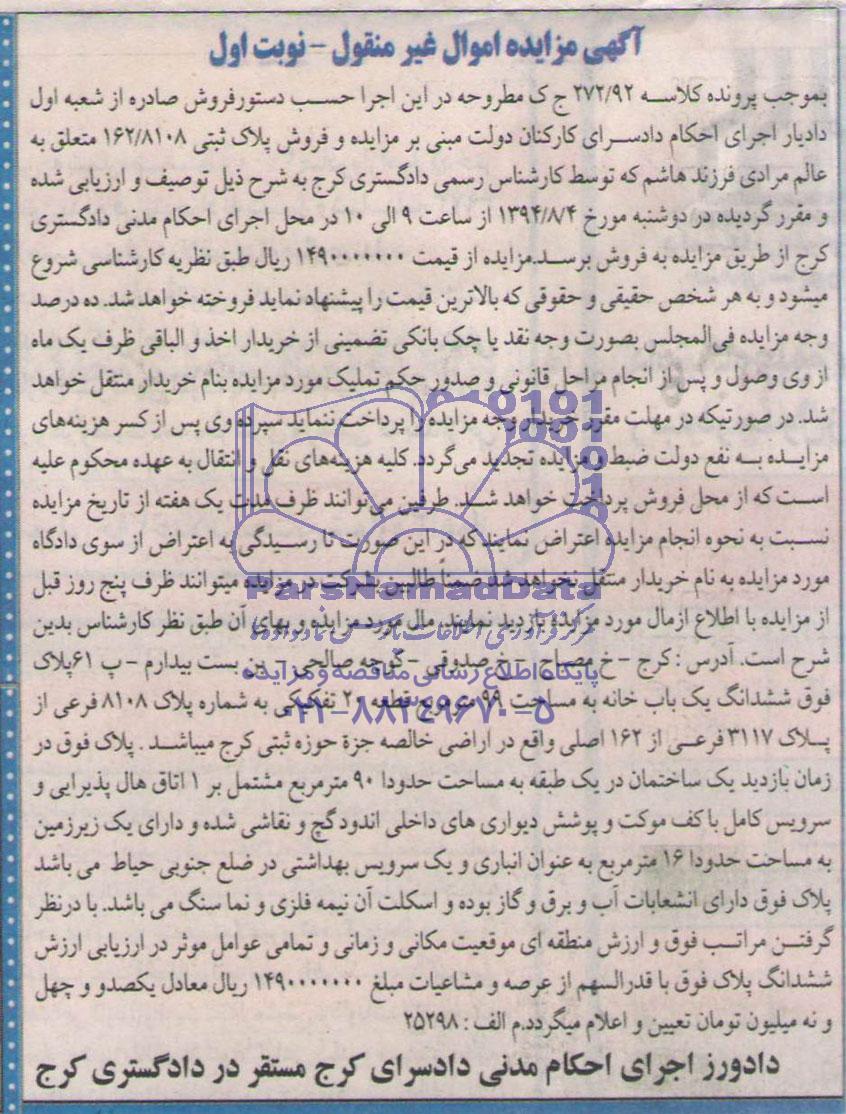 آگهی مزایده اموال غیر منقول - نوبت اول
بموجب پرونده کلاسه ۲۷۲/۹۲ ج ک مطروحه در این اجرا حسب دستورفروش صادره از شعبه اول
دادیار اجرای احکام دادسرای کارکنان دولت مبنی بر مزایده و فروش پلاک ثبتی ۱۶۲/۸۱۰۸ متعلق به
عالم مرادی فرزند هاشم که توسط کارشناس رسمی دادگستری کرج به شرح ذیل توصیف و ارزیابی شده
و مقرر گردیده در دوشنبه مورخ ۱۳۹۴/۸/۴ از ساعت ۹ الی ۱۰ در محل اجرای احکام مدنی دادگستری
کرج از طریق مزایده به فروش برسد.مزایده از قیمت ۱۴۹۰۰۰۰۰۰۰ ریال طبق نظریه کارشناسی شروع
میشود و به هر شخص حقیقی و حقوقی که بالاترین قیمت را پیشنهاد نماید فروخته خواهد شد. ده درصد
وجه مزایده فی المجلس بصورت وجه نقد یا چک بانکی تضمینی از خریدار اخذ و الباقی ظرف یک ماه
از وی وصول و پس از انجام مراحل قانونی و صدور حکم تملیک مورد مزایده بنام خریدار منتقل خواهد
شد. در صورتیکه در مهلت مقرر خریدار وجه مزایده را پرداخت ننماید سپرده وی پس از کسر هزینه‌های
مزایده به نفع دولت ضبط و مزایده تجدید می‌گردد. کلیه هزینه‌های نقل و انتقال به عهده محکوم علیه
است که از محل فروش پرداخت خواهد شد. طرفین می‌توانند ظرف مدت یک هفته از تاریخ مزایده
نسبت به نحوه انجام مزایده اعتراض نمایند که در این صورت تا رسیدگی به اعتراض از سوی دادگاه
مورد مزایده به نام خریدار منتقل نخواهد شد ضمناً طالبین شرکت در مزایده میتوانند ظرف پنج روز قبل
از مزایده با اطلاع ازمال مورد مزایده بازدید نمایند. مال مورد مزایده و بهای آن طبق نظر کارشناس بدین
شرح است. آدرس : کرج - خ مصباح - خ صدوقی - کوچه صالحی - بن بست بیدارم - پ ۶۱پلاک
فوق ششدانگ یک باب خانه به مساحت ۹۹ متر مربع قطعه ۲۰ تفکیکی به شماره پلاک ۸۱۰۸ فرعی از
پلاک ۳۱۱۷ فرعی از ۱۶۲ اصلی واقع در اراضی خالصه جزة حوزه ثبتی کرج میباشد . پلاک فوق در
زمان بازدید یک ساختمان در یک طبقه به مساحت حدودا ۹۰ مترمربع مشتمل بر ۱ اتاق هال پذیرایی و
سرویس کامل با کف موکت و پوشش دیواری های داخلی اندود گچ و نقاشی شده و دارای یک زیرزمین
به مساحت حدودا ۱۶ مترمربع به عنوان انباری و یک سرویس بهداشتی در ضلع جنوبی حیاط می باشد
پلاک فوق دارای انشعابات آب و برق و گاز بوده و اسکلت آن نیمه فلزی و نما سنگ می باشد. با درنظر
گرفتن مراتب فوق و ارزش منطقه ای موقعیت مکانی و زمانی و تمامی عوامل موثر در ارزیابی ارزش
ششدانگ پلاک فوق با قدرالسهم از عرصه و مشاعیات مبلغ ۱۴۹۰۰۰۰۰۰۰ ریال معادل یکصدو و چهل
و نه میلیون تومان تعیین و اعلام میگردد.م الف : ۲۵۲۹۸
دادورز اجرای احکام مدنی دادسرای کرج مستقر در دادگستری کرج
ParsNamadData
پایگاه اطلاع رسانی مناقصه و مزایده
۰۲۱-۸۸۳۴۹۶۷۰-۵